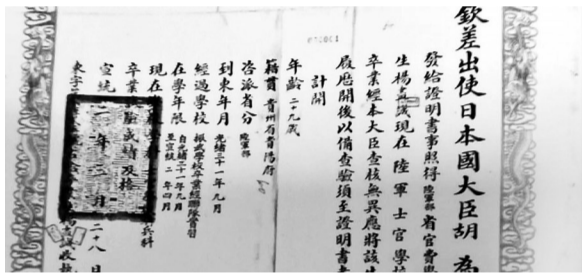 欽差出使日本國大臣胡 為
發給證明書事照得 陸軍部 省官費學
生楊 誠現在陸軍士官學校
卒業經本大臣查核無異應將該生
履歷開後以備查驗須至證明書者
計開
年齡二十九歲
籍貫貴州省貴陽府
咨派省分 陸軍部
到東年月 光緒三十一年九月
經過學校 振武學校卒業經聯隊實習
在學年限 自光緒三十一年九月至宣統二年四月
現在 兵科
卒業 試時及格
宣統二年 二月二十八日
東字